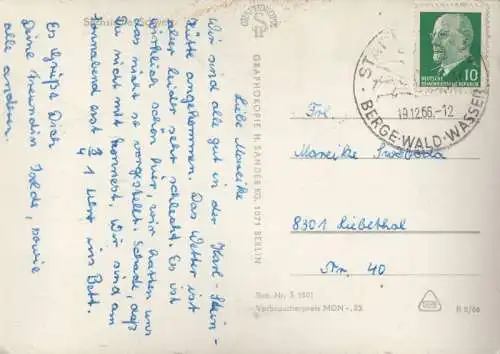 Sächsische Schweiz
Liebe Mareike
Wir sind alle gut in der Karl-Stein-
Hütte angekommen. Das Wetter ist
aber leider sehr schlecht. Es ist
wirklich schön hier, wir hatten uns
das nicht so vorgestellt. Schade, daß
Du nicht mit konntest. Wir sind am
Sonnabend erst 3/4 1 Uhr ins Bett.
Es grüßt Dich
Deine Freundin Isolde, sowie
alle andern.
GRAPHOKOPIE
GRAPHOKOPIE H. SANDER KG. 1071 BERLIN
10
DEUTSCHE
DEMOKRATISCHE REPUBLIK
19.12.66.-12
BERGE·WALD·WASSER
Frl.
Mareike
8301 Liebethal
Nr. 40
Best. Nr. S 1801
Verbraucherpreis MDN -,25
R 5/66